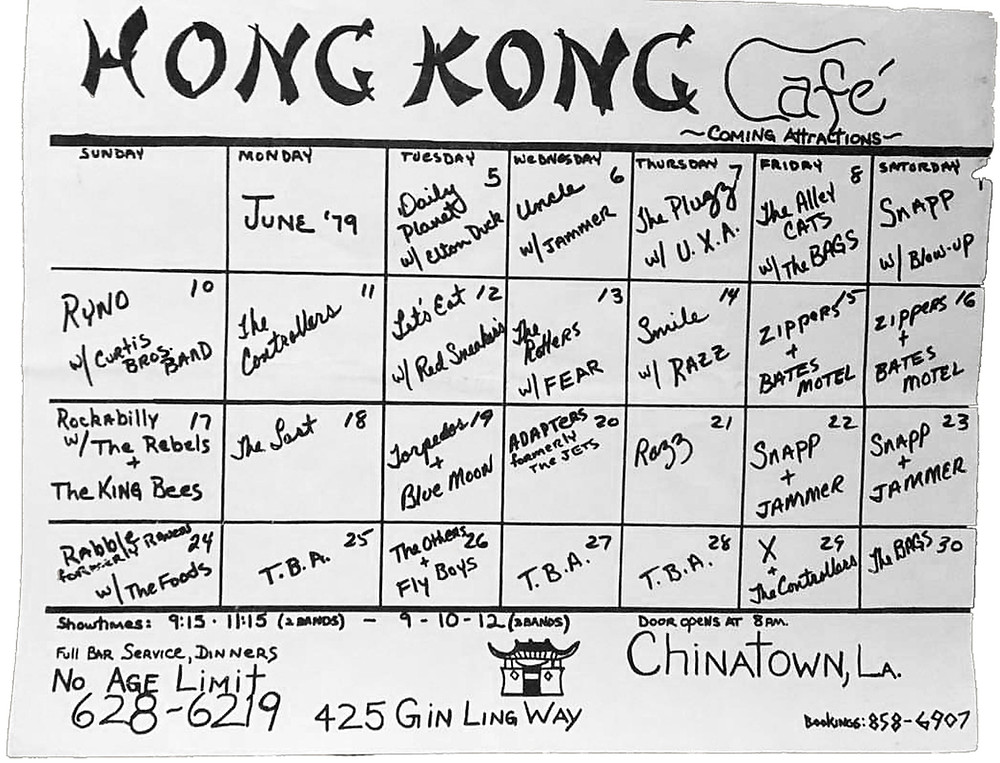 HONG KONG Café
~COMING ATTRACTIONS~
SUNDAY MONDAY TUESDAY WEDNESDAY THURSDAY FRIDAY SATURDAY
JUNE '79
5
Daily
Planet
w/ Elton Duck
6
Uncle
w/ JAMMER
7
The Plugz
w/ U.X.A.
8
The Alley
CATS
w/ The BAGS
SNAPP
w/ Blow-up
10
RYNO
w/ CURTIS
BROS. BAND
11
The
Controllers
Let's Eat 12
w/ Red Sneakers
13
The
Rotters
w/ FEAR
14
Smile
w/ RAZZ
ZIPPERS 15
+
BATES
MOTEL
ZIPPERS 16
+
BATES
MOTEL
ROCKABILLY 17
w/ The Rebels
+
The KING Bees
The Last 18
Torpedos 19
+
Blue Moon
ADAPTERS 20
formerly
The JETS
21
Razz
22
SNAPP
+
JAMMER
23
SNAPP
+
JAMMER
Rabble
formerly Ravens 24
w/ The Foods
25
T.B.A.
The Others 26
+
Fly Boys
27
T.B.A.
28
T.B.A.
X 29
+
The Controllers
The BAGS 30
Showtimes: 9:15 · 11:15 (2 BANDS) - 9-10-12 (3 BANDS) DOOR OPENS AT 8 PM.
Full BAR SERVICE, DINNERS
No AGE Limit
628-6219
425 GIN LING WAY
CHINATOWN, LA.
BOOKINGS: 858-6907